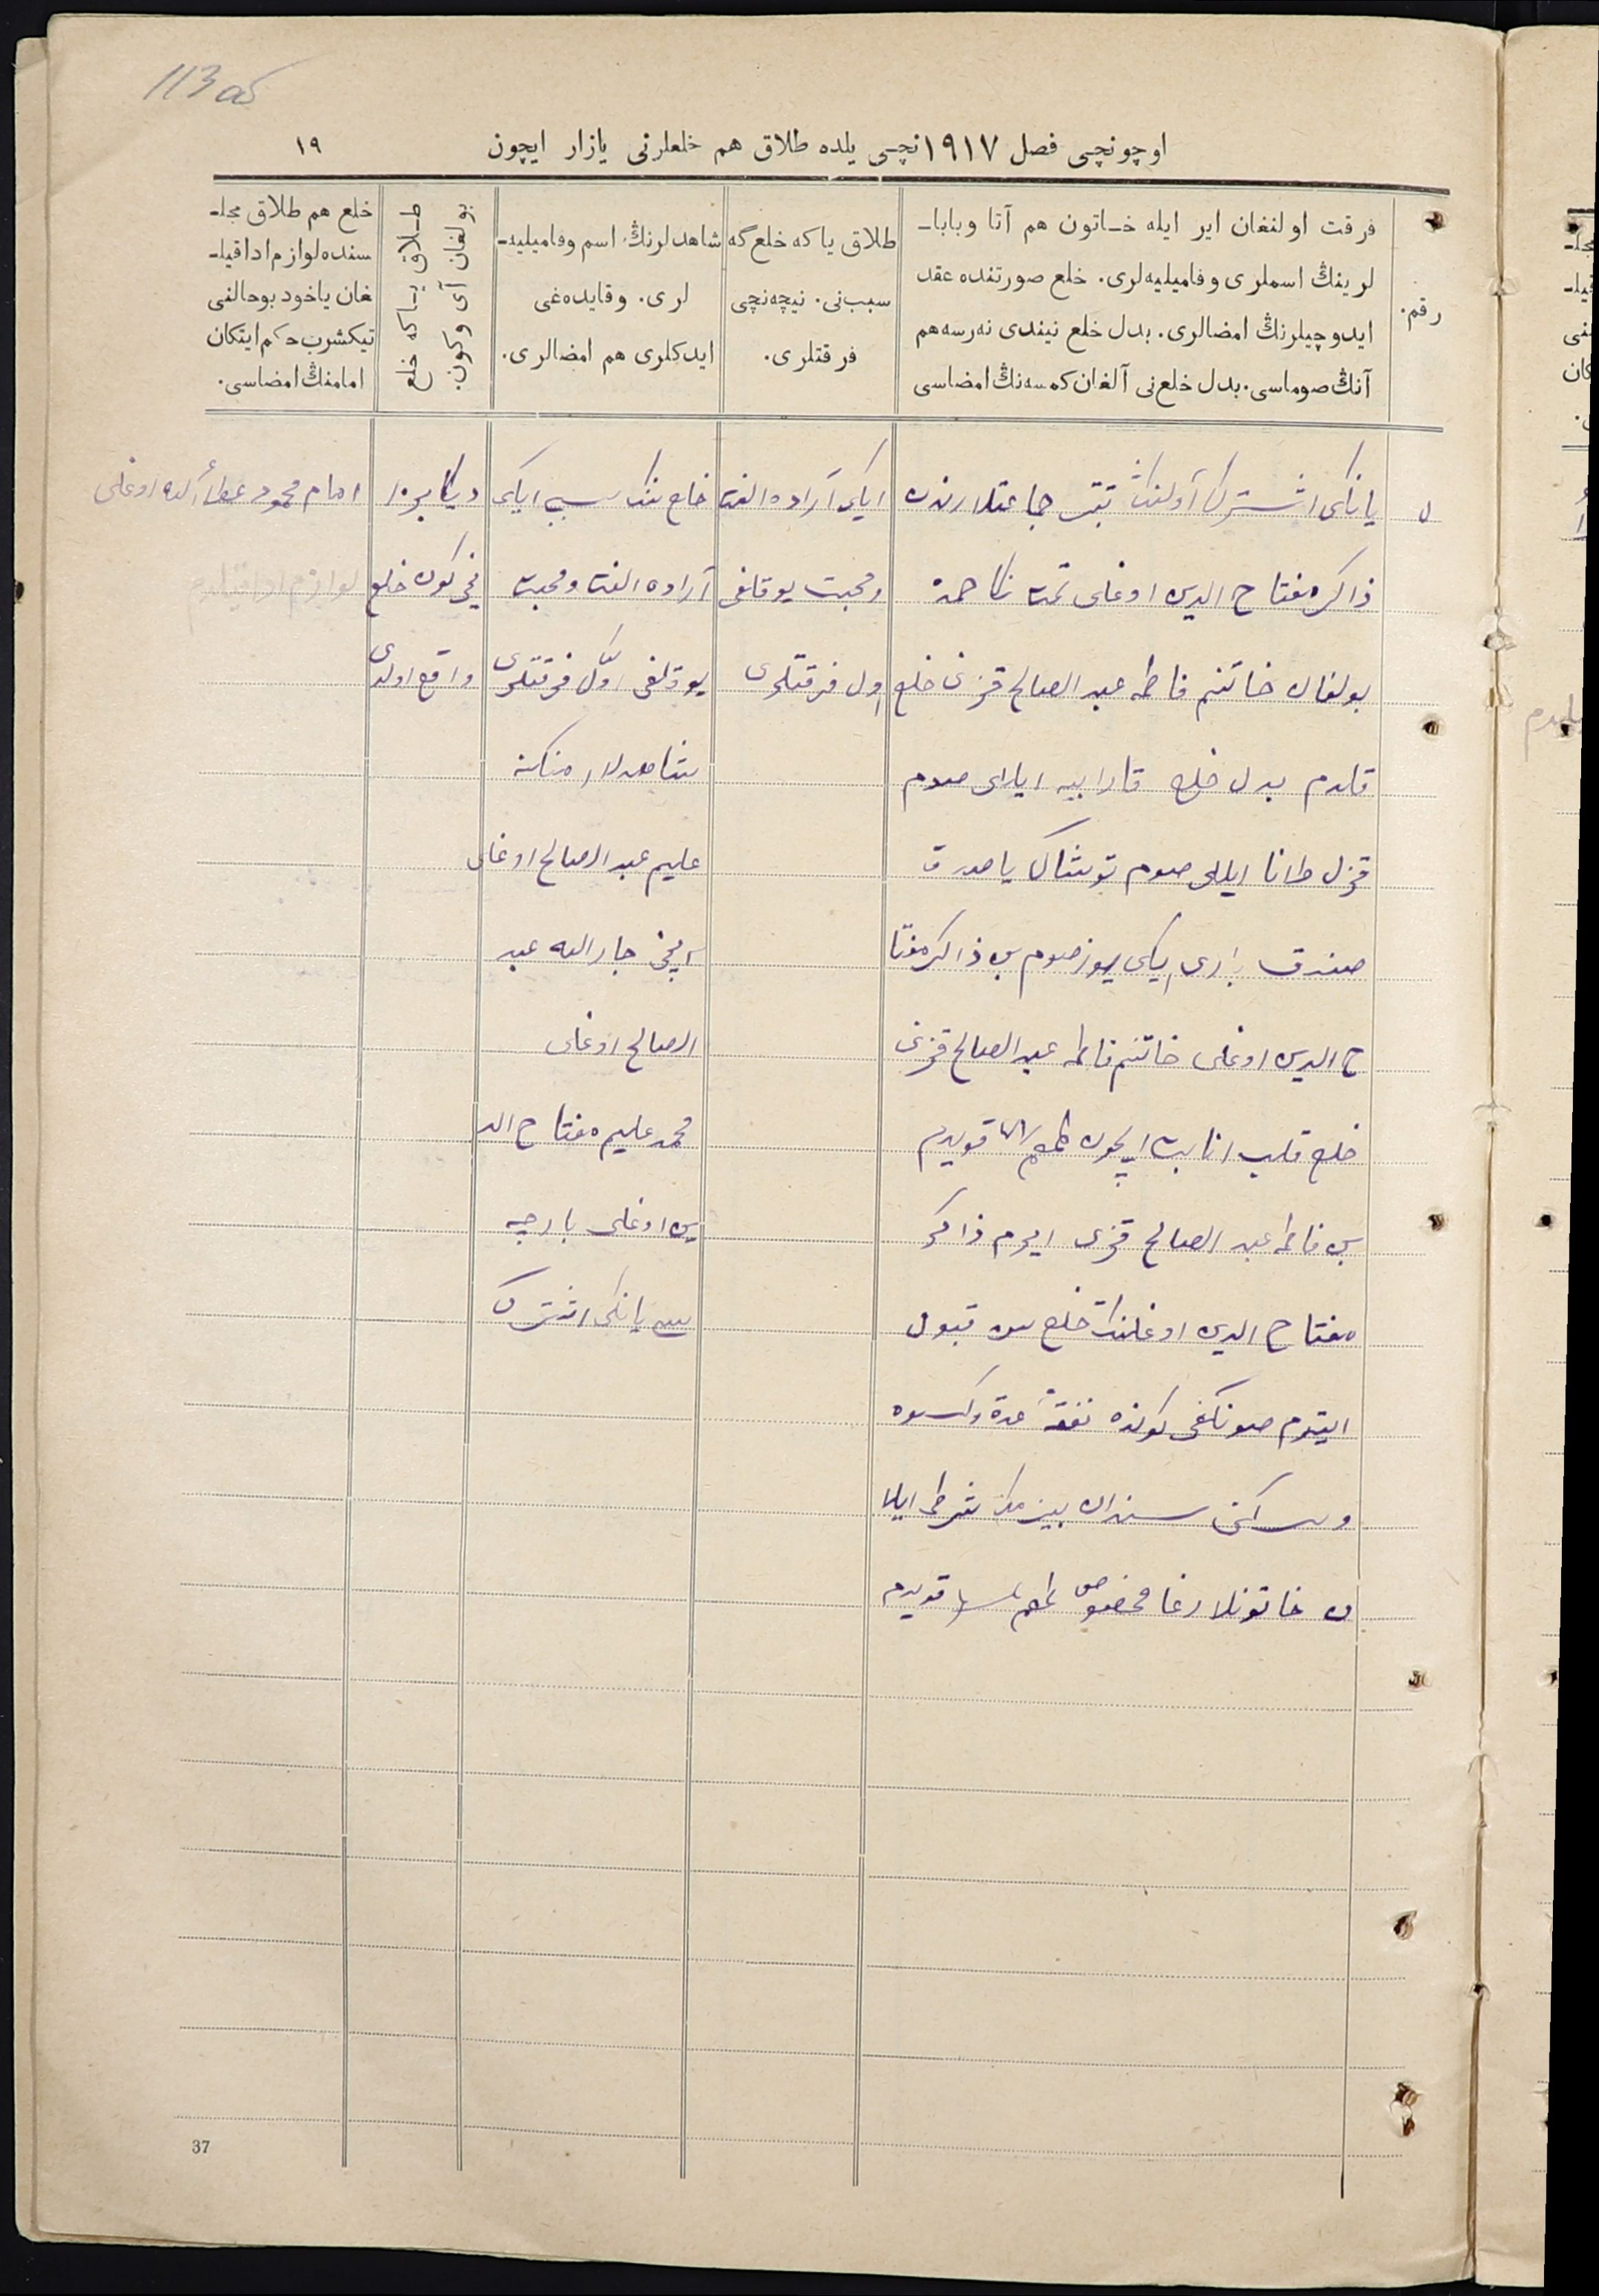 113 об
اوچونچی فصل ١٩١٧نچی یلده طلاق هم خلعلرنی یازار ایچون
١٩
رقم.
فرقت اولنغان ایر ایله خاتون هم آتا وبابا-
لرینڭ اسملری وفامیلیه‌لری. خلع صورتنده عقد
ایدوچیلرنڭ امضالری. بدل خلع نیندی نه‌رسه هم
آنڭ صوماسی. بدل خلع‌نی آلغان کمسه‌نڭ امضاسی
طلاق یاکه خلع‌گه
سبب‌نی. نیچه‌نچی
فرقتلری.
شاهدلرنڭ اسم وفامیلیه-
لری. وقایده‌غی
ایدکلری هم امضالری.
طلاق یاکه خلع
بولغان آی وکون.
خلع هم طلاق مجلـ
سنده لوازم اداقیلـ
غان یاخود بوحالنی
تیکشرب حکم ایتکان
امامنڭ امضاسی.
یانکی اشترک آولنڭ جماعتلارندن
ذاکر مفتاح الدین اوغلی تحت نکاحمده
بولغان خاتنم فاطمه عبد الصالح قزنی خلع
قلدم بدل خلع قارا بیه صوم
قزل طانا ایللی صوم توشاک یاصدق
صندق باری ایکی یوز صوم من ذاکر مفتا
ح الدین اوغلی خاتنم فاطمه عبد الصالح قزنی
خلع قلیب ایچون قویدم
من فاطمه عبد الصالح قزی ایرم ذاکر
مفتاح الدین اوغلندن خلع قبول
ایتدم صونکغی کونده نفقۀ عدة وکسوه
وسکنی سندان شرطی ایله
خاتونلارغا مخصوص قویدم
ایکی آراده الفت
ومحبت یوقلغی
اول فرقتلری
خلع ننک سببی ایکی
آراده الفت ومحبت
یوقلغی اول فرقتلری
شاهدلار
علیم عبد الصالح اوغلی
جار الله عبد
الصالح اوغلی
محمد علیم مفتاح الد
ین اوغلی بارچه
سی یانکی اشترک
دیکابر ١٠
نچی کون خلع
واقع اولدی
امام محمود عطاء الله اوغلی
لوازم ادا قیلدم
37